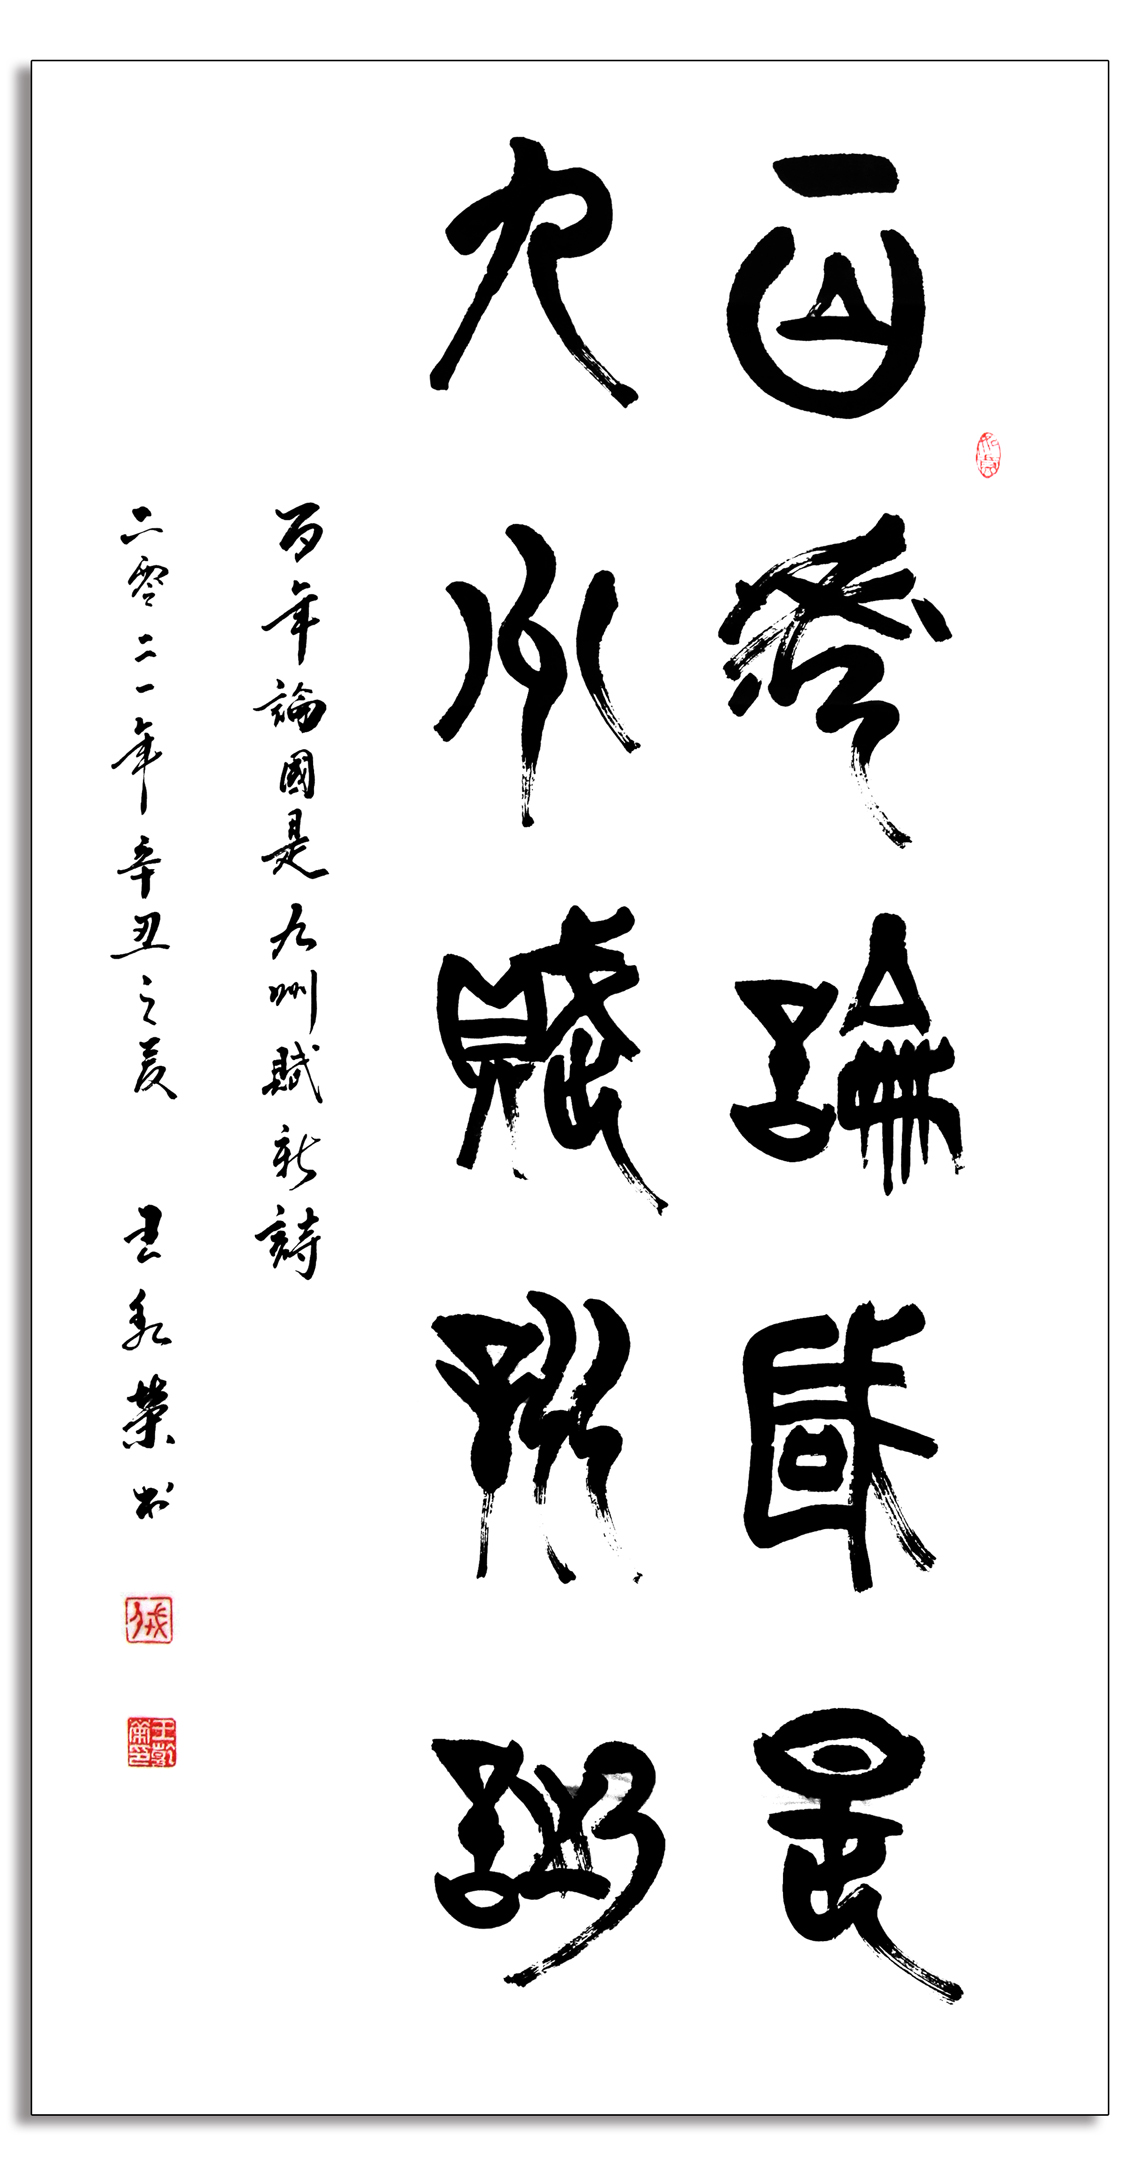 百年論國是
九州賦新詩
百年論國是九州賦新詩
二零二一年辛丑之夏 王乾榮书
王乾榮印